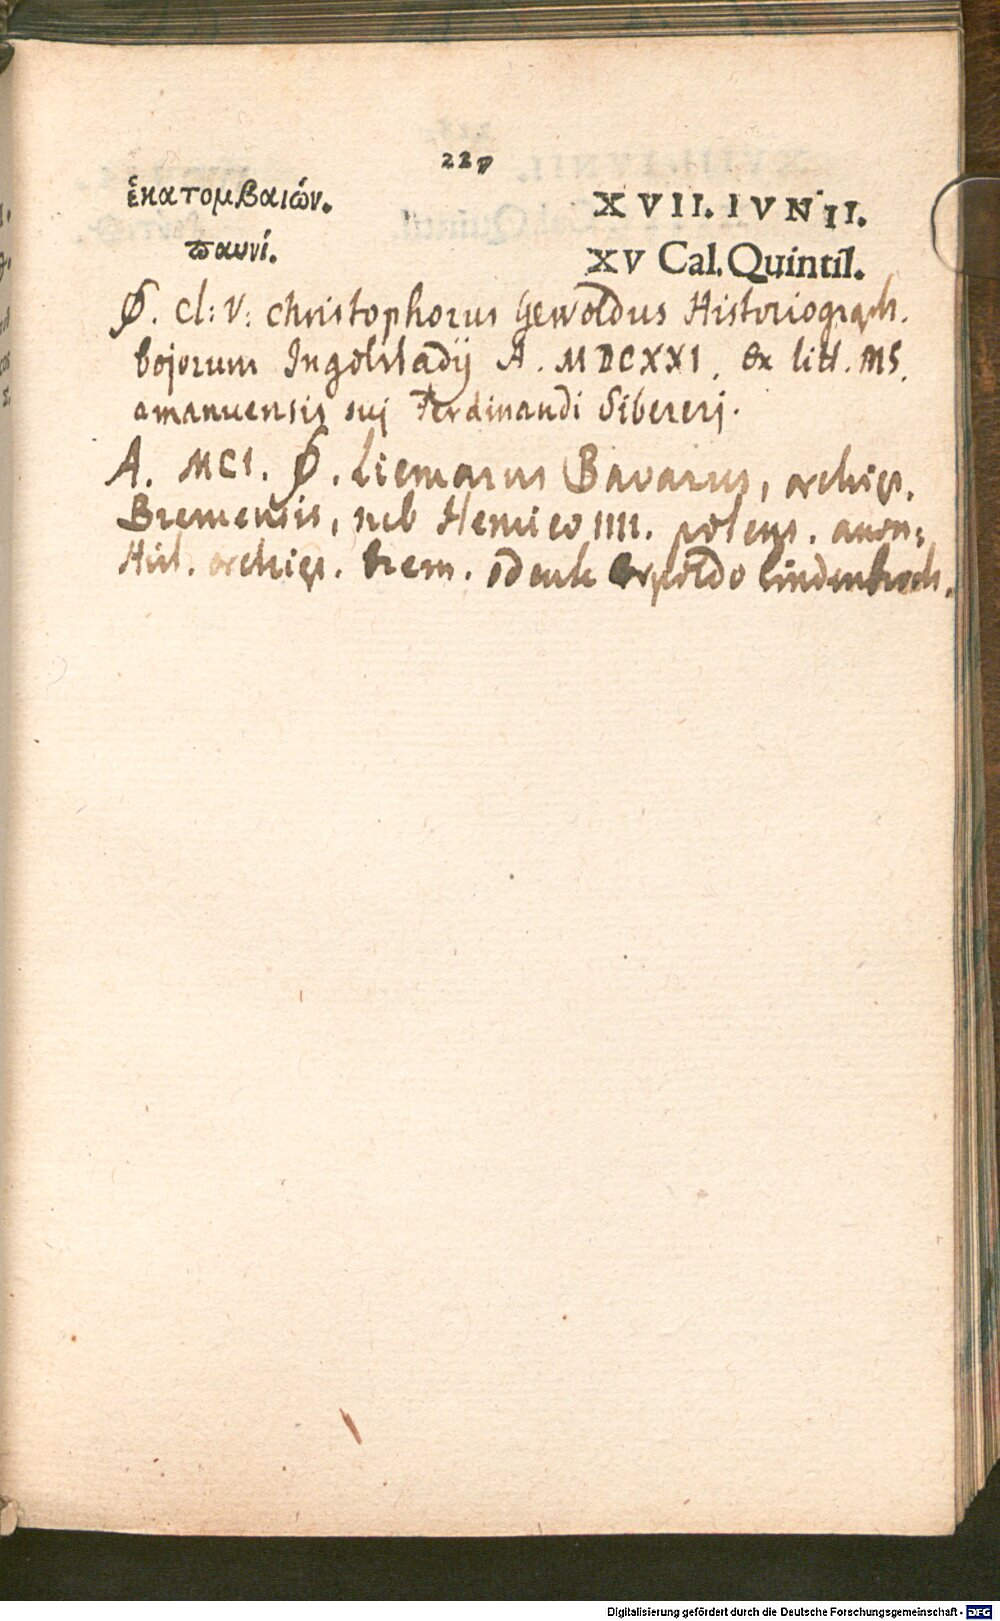 227
ἑκατομβαιών.
XVII. IVNII.
παυνί.
XV Cal. Quintil.
Ꝋ. Cl: V: Christophorus Gewoldus Historiograph.
bojorum Ingolstadij A. MDCXXI. ex litt. MS.
amanuensis sui Ferdinandi Sibereri.
A. MCI. Ꝋ. Liemarus Bavarus, archiep.
Bremensis, sub Henrico IIII. potens. anon:
Hist. archiep. brem. edente Erpoldo Lindenbroch.
Digitalisierung gefördert durch die Deutsche Forschungsgemeinschaft - DFG